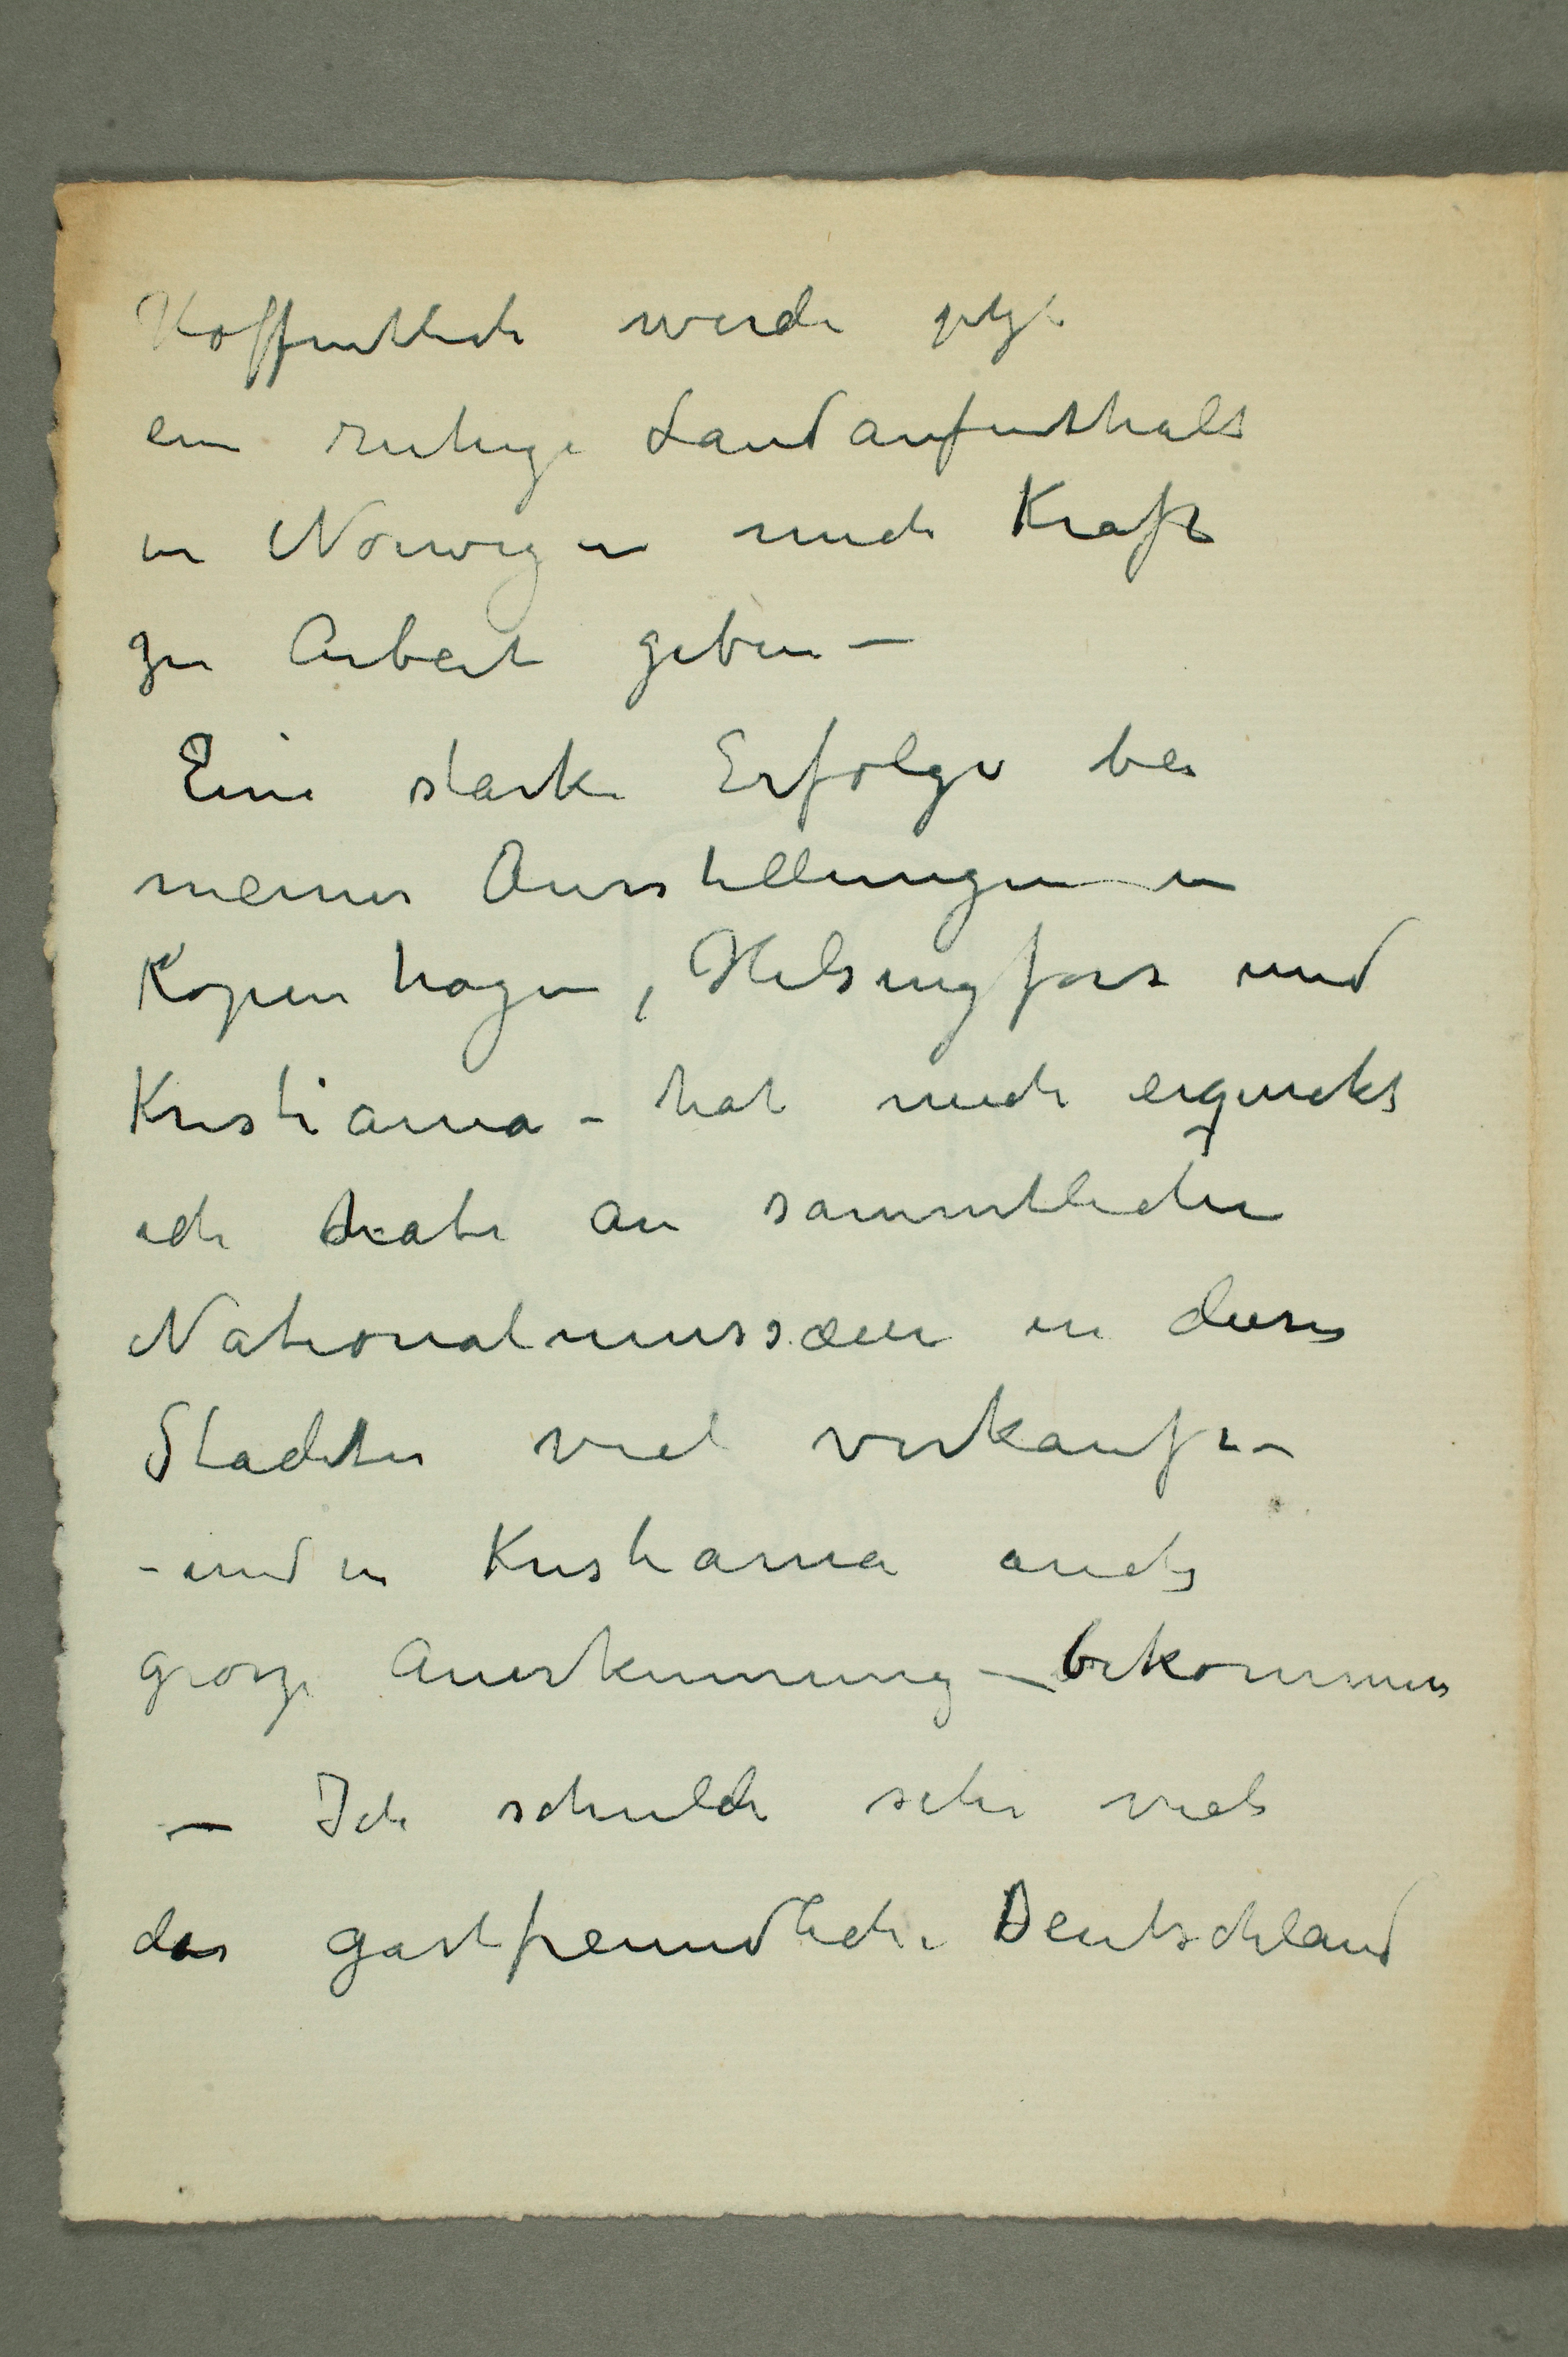 Hoffentlich werde jetzt
ein ruhige Landaufenthalt
in Norwegen mich Kraft
zu Arbeit geben –
Eine starke Erfolge bei
meiner Ausstellungen in
Kopenhagen, Helsingfors und
Kristiania – hat mich erquickt
ich habe an sammtlichen
Nationalmussæen in diesen
Stadten viel verkauft –
– und in Kristiania auch
grosze Anerkennung – bekommen
– Ich schulde sehr viel
das gastfreundliche Deutschland